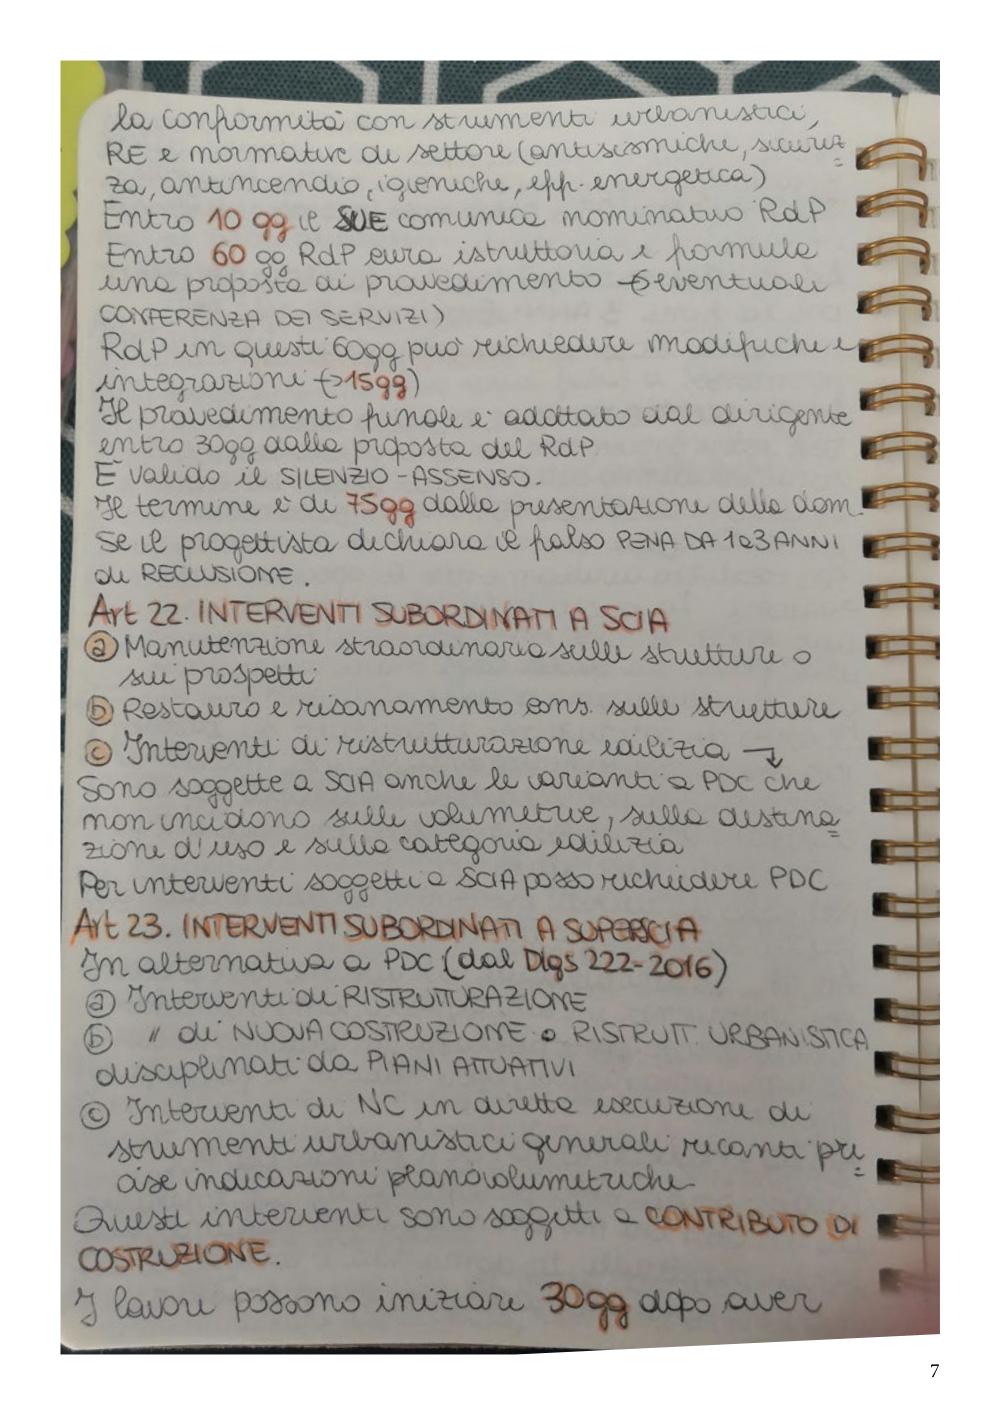 la conformità con strumenti urbanistici,
RE e normative di settore (antisismiche, sicurez
za, antincendio, igieniche, eff. energetica)
Entro 10 gg il SUE comunica nominativo RdP
Entro 60 gg RdP cura istruttoria e formula
una proposta di provvedimento (→ eventuali
CONFERENZA DEI SERVIZI)
RdP in questi 60gg può richiedere modifiche e
integrazioni (→15gg)
Il provvedimento finale è adottato dal dirigente
entro 30gg dalla proposta del RdP.
È valido il SILENZIO-ASSENSO.
Il termine è di 75gg dalla presentazione della dom.
Se il progettista dichiara il falso PENA DA 1 a 3 ANNI
di RECLUSIONE.
Art 22. INTERVENTI SUBORDINATI A SCIA
a Manutenzione straordinaria sulle strutture o
sui prospetti
b Restauro e risanamento cons. sulle strutture
c Interventi di ristrutturazione edilizia →
Sono soggette a SCIA anche le varianti a PDC che
non incidono sulle volumetrie, sulla destina
zione d'uso e sulla categoria edilizia
Per interventi soggetti a SCIA posso richiedere PDC
Art 23. INTERVENTI SUBORDINATI A SUPERSCIA
In alternativa a PDC (dal Dlgs 222-2016)
a Interventi di RISTRUTTURAZIONE
b " di NUOVA COSTRUZIONE o RISTRUTT. URBANISTICA
disciplinati da PIANI ATTUATIVI
c Interventi di NC in diretta esecuzione di
strumenti urbanistici generali recanti pre
cise indicazioni planovolumetriche
Questi interventi sono soggetti a CONTRIBUTO DI
COSTRUZIONE.
I lavori possono iniziare 30gg dopo aver
7